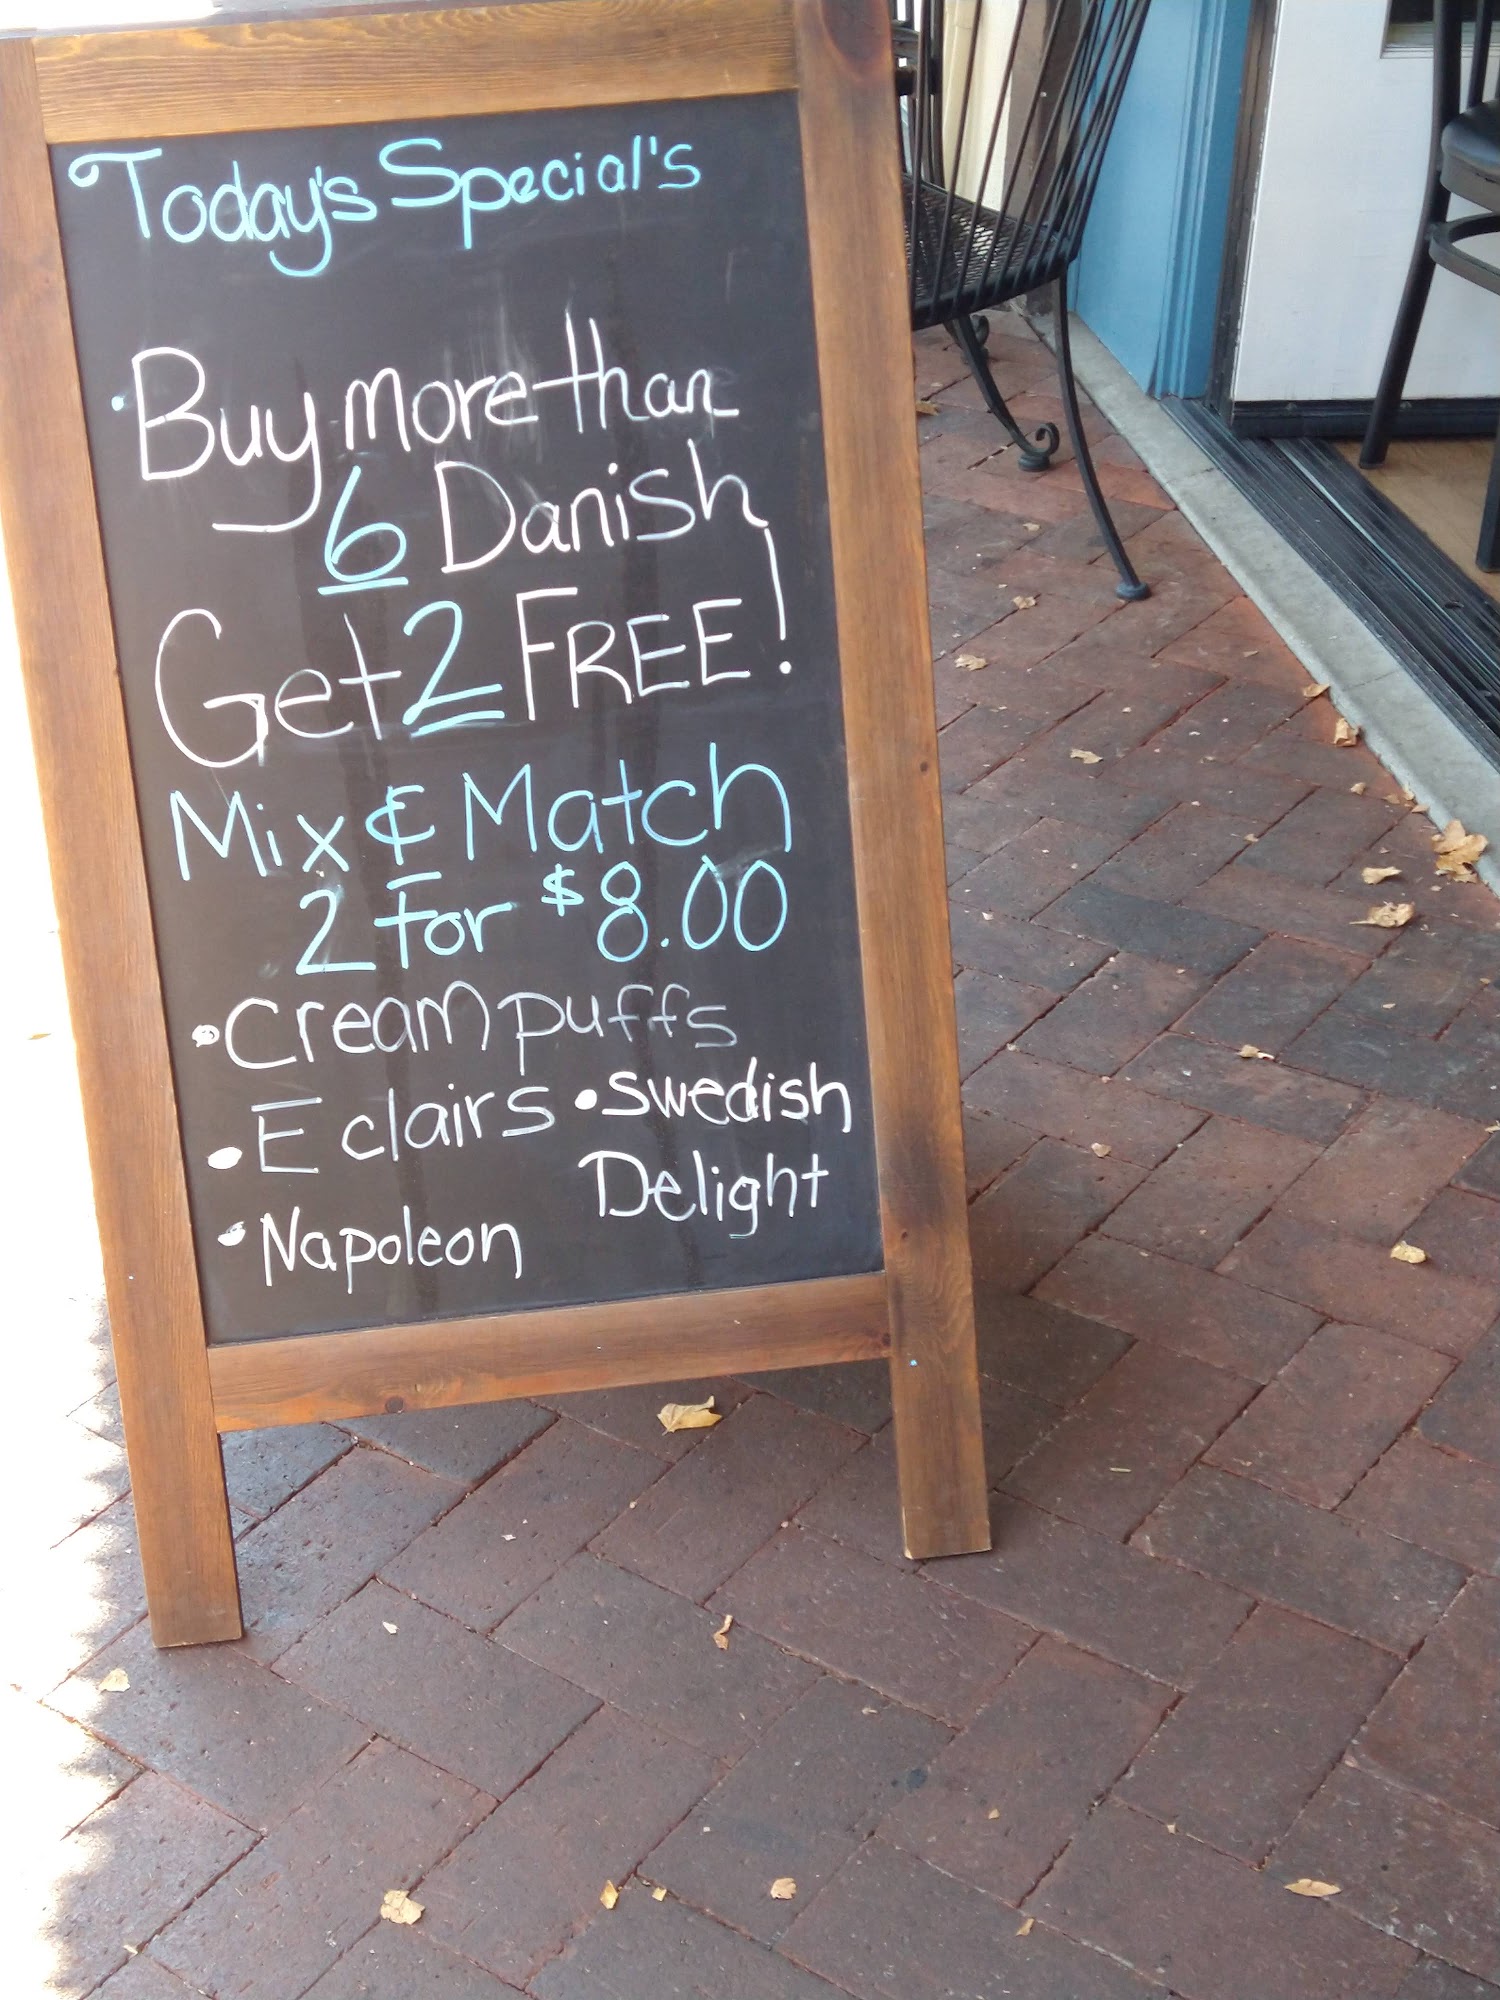 Today's Special's
Buy more than
6 Danish
Get 2 FREE!
Mix & Match
2 For $8.00
• Cream puffs
• Eclairs
• Swedish
Delight
• Napoleon